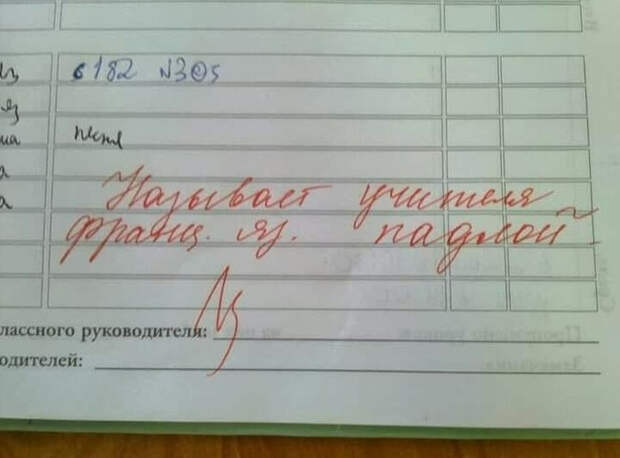 с 182 №3@5
яз
песня
Называет учителя
франц. яз. падлой
лассного руководителя:
одителей: